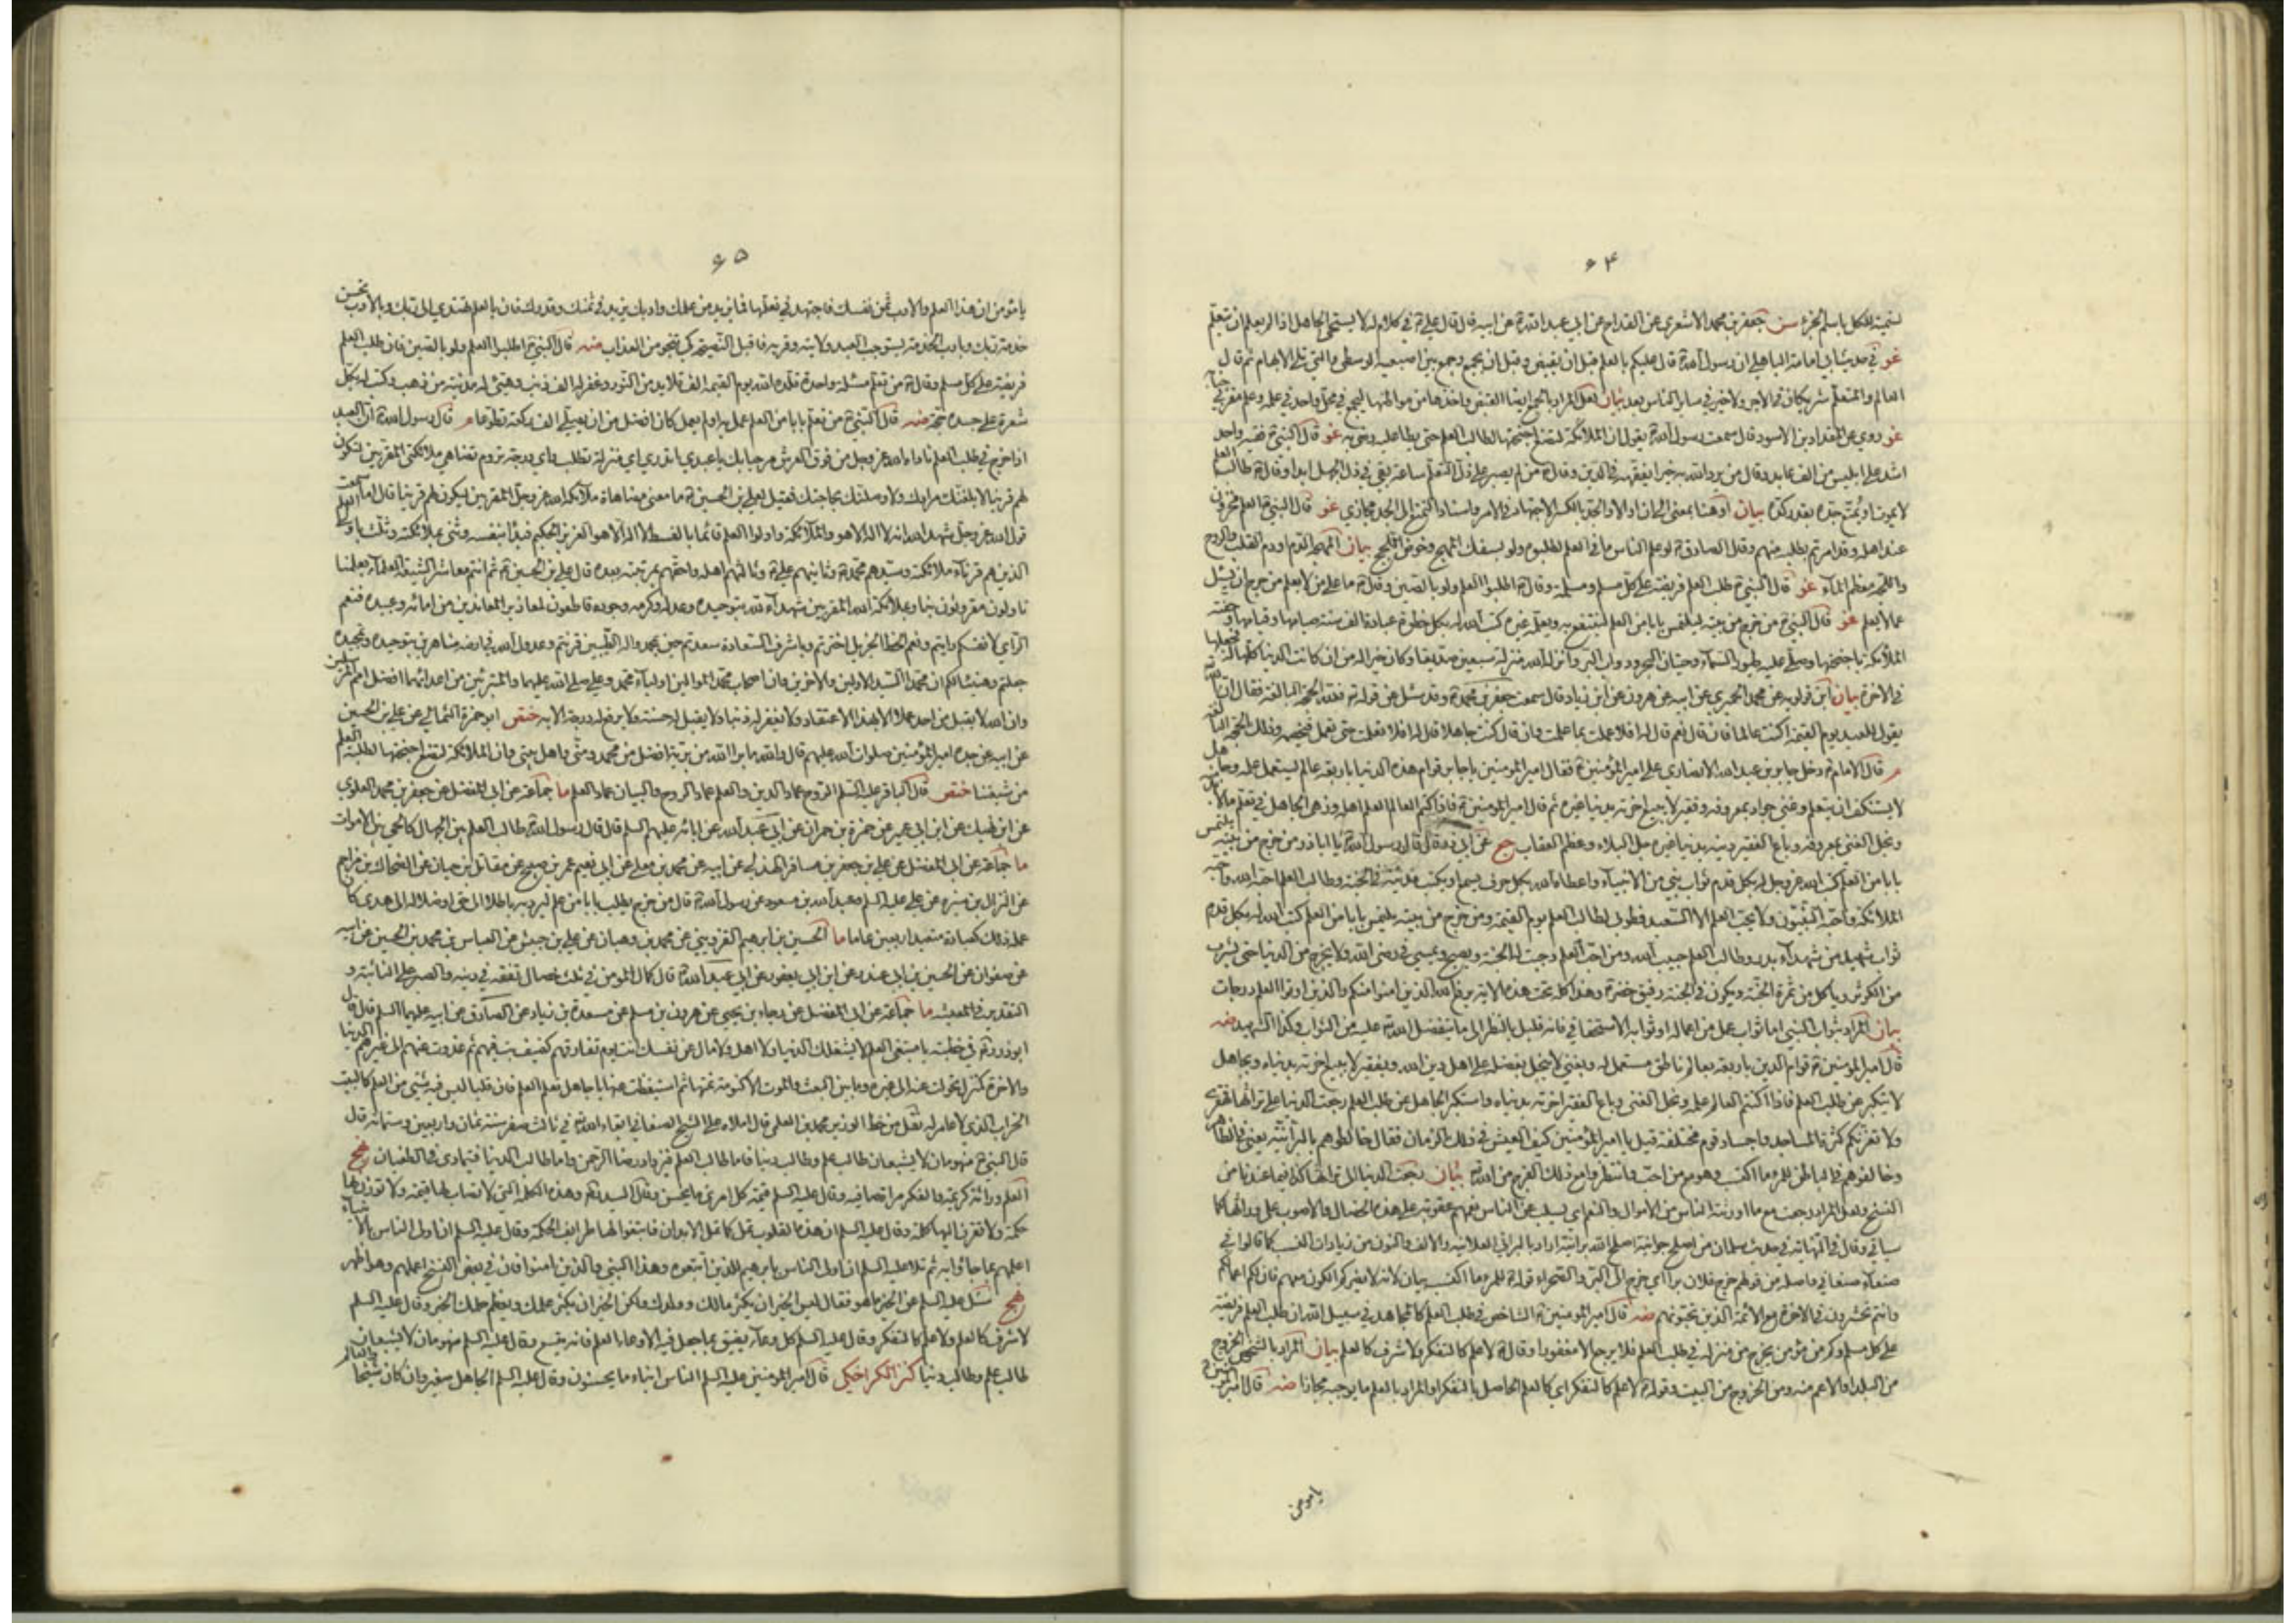 ۶۴
لتسمية للكل باسم الجزء سن جعفر بن محمد الاشعري عن القداح عن ابي عبد الله ع عن ابيه قال قال علي ع في كلام له لا يستحي الجاهل اذا لم يعلم ان يتعلم
غو في حديث ابي امامة الباهلي ان رسول الله ص قال عليكم بالعلم قبل ان يقبض وقبل ان يجمع وجمع بين اصبعيه الوسطى والتي تلي الابهام ثم قال
العالم والمتعلم شريكان في الاجر ولا خير في سائر الناس بعد بيان لعل المراد بالجمع ايضا القبض
غو روي عن المقداد بن الاسود قال سمعت رسول الله ص يقول ان الملائكة لتضع اجنحتها لطالب العلم حتى يطأ عليه رضى به غو قال النبي ص فقيه واحد
اشد على ابليس من الف عابد وقال من يرد الله به خيرا يفقهه في الدين وقال ص من لم يصبر على ذل التعلم ساعة بقي في ذل الجهل ابدا وقال ص طالب العلم
لا يموت او يمتع جده بقدر كده بيان او هنا بمعنى الى ان او الا ان والجد بالكسر الاجتهاد في الامر واسناد التمتع الى الجد مجازي غو قال النبي ص العلم مخزون
عند اهله وقد امرتم بطلبه منهم وقال الصادق ع لو علم الناس ما في العلم لطلبوه ولو بسفك المهج وخوض اللجج بيان المهجة الدم او دم القلب والروح
واللجة معظم الماء غو قال النبي ص طلب العلم فريضة على كل مسلم ومسلمة وقال ص اطلبوا العلم ولو بالصين وقال ص ما على من لا يعلم من حرج ان يسئل
عما لا يعلم غو قال النبي ص من خرج من بيته ليلتمس بابا من العلم لينتفع به ويعلمه غيره كتب الله له بكل خطوة عبادة الف سنة صيامها وقيامها وحفته
الملائكة باجنحتها وصلى عليه طيور السماء وحيتان البحر ودواب البر وانزله الله منزلة سبعين صديقا وكان خيرا له من ان كانت الدنيا كلها له فجعلها
في الاخرة بيان ابن قولويه عن محمد الحميري عن ابيه عن هرون عن ابن زياد قال سمعت جعفر بن محمد ع وقد سئل عن قوله تع فلله الحجة البالغة فقال ان الله تع
يقول للعبد يوم القيمة اكنت عالما فان قال نعم قال له افلا عملت بما علمت وان قال كنت جاهلا قال له افلا تعلمت حتى تعمل فيخصمه وذلك الحجة البالغة
م قال الامام ع دخل جابر بن عبد الله الانصاري على امير المؤمنين ع فقال امير المؤمنين يا جابر قوام هذه الدنيا باربعة عالم يستعمل علمه وجاهل
لا يستنكف ان يتعلم وغني جواد بمعروفه وفقير لا يبيع اخرته بدنيا غيره ثم قال امير المؤمنين ع فاذا كتم العالم العلم اهله وزهى الجاهل في تعلم ما لا
وبخل الغني بمعروفه وباع الفقير دينه بدنيا غيره حل البلاء وعظم العقاب جع عن ابي ذر قال قال رسول الله ص يا اباذر من خرج من بيته يلتمس
بابا من العلم كتب الله عز وجل له بكل قدم ثواب نبي من الانبياء واعطاه الله بكل حرف يسمع او يكتب مدينة في الجنة وطالب العلم احبه الله واحبه
الملائكة واحبه النبيون ولا يحب العلم الا السعيد فطوبى لطالب العلم يوم القيمة ومن خرج من بيته يلتمس بابا من العلم كتب الله له بكل قدم
ثواب شهيد من شهداء بدر وطالب العلم حبيب الله ومن احب العلم وجبت له الجنة ويصبح ويمسي في رضى الله ولا يخرج من الدنيا حتى يشرب
من الكوثر وياكل من ثمرة الجنة ويكون في الجنة رفيق خضر ع وهذا كله تحت هذه الاية يرفع الله الذين امنوا منكم والذين اوتوا العلم درجات
بيان المراد بثواب النبي اما ثواب عمل من اعماله او ثوابه الاستحقاقي فانه قليل بالنظر الى ما يتفضل الله تع عليه من الثواب وكذا الشهيد ضه
قال امير المؤمنين ع قوام الدين باربعة بعالم ناطق مستعمل له وبغني لا يبخل بفضله على اهل دين الله وبفقير لا يبيع اخرته بدنياه وبجاهل
لا يتكبر عن طلب العلم فاذا اكتتم العالم علمه وبخل الغني وباع الفقير اخرته بدنياه واستكبر الجاهل عن طلب العلم رجعت الدنيا على تراثها قهقرى
ولا تغرنكم كثرة المساجد واجساد قوم مختلفة قيل يا امير المؤمنين كيف العيش في ذلك الزمان فقال خالطوهم بالبرانية يعني في الظاهر
وخالفوهم في الباطن للمرء ما اكتسب وهو مع من احب وانتظروا مع ذلك الفرج من الله تع بيان رجعت الدنيا الى تراثها كذا فيما عندنا من
النسخ ولعل المراد رجعت مع ما اورثته الناس من الاموال والنعم اي يسلب عن الناس نعمهم عقوبة على هذه الخصال والاصوب على ورائها كما
سياتي وقال في النهاية في حديث سلمان من اصلح جوانيه اصلح الله برانيه اراد بالبراني العلانية والالف والنون من زيادات النسب كما قالوا في
صنعاء صنعاني واصله من قولهم خرج فلان برا اي خرج الى البر والصحراء قوله ع للمرء ما اكتسب بيان لانه لا يضركم الكون معهم فان لكم اعمالكم
وانتم تحشرون في الاخرة مع الائمة الذين تحبونهم ضه قال امير المؤمنين ع الشاخص في طلب العلم كالمجاهد في سبيل الله ان طلب العلم فريضة
على كل مسلم وكم من مؤمن يخرج من منزله في طلب العلم فلا يرجع الا مغفورا وقال ع لا علم كالتفكر ولا شرف كالعلم بيان المراد بالشخوص الخروج
من البلد او الاعم منه ومن الخروج من البيت وقوله ع لا علم كالتفكر اي كالعلم الحاصل بالتفكر او المراد بالعلم ما يوجبه مجازا ضه قال امير المؤمنين ع
يا مؤمن
۶۵
يا مؤمن ان هذا العلم والادب ثمن نفسك فاجتهد في تعلمها فما يزيد من علمك وادبك يزيد في ثمنك وقدرك فان بالعلم تهتدي الى ربك وبالادب تحسن
خدمة ربك وبادب الخدمة يستوجب العبد ولايته وقربه فاقبل النصيحة كي تنجو من العذاب ضه قال النبي ص اطلبوا العلم ولو بالصين فان طلب العلم
فريضة على كل مسلم وقال ص من تعلم مسئلة واحدة قلده الله يوم القيمة الف قلائد من النور وغفر له الف ذنب وبنى له مدينة من ذهب وكتب له بكل
شعرة على جسده حجة ضه قال النبي ص من تعلم بابا من العلم عمل به او لم يعمل كان افضل من ان يصلي الف ركعة تطوعا م قال رسول الله ص ان العبد
اذا خرج في طلب العلم ناداه الله عز وجل من فوق العرش مرحبا بك يا عبدي اتدري اي منزلة تطلب واي درجة تروم تضاهي ملائكتي المقربين لتكون
لهم قرينا لابلغنك مرادك ولاوصلنك بحاجتك فقيل لعلي بن الحسين ع ما معنى مضاهاة ملائكة الله عز وجل المقربين ليكون لهم قرينا قال اما سمعت
قول الله عز وجل شهد الله انه لا اله الا هو والملائكة واولوا العلم قائما بالقسط لا اله الا هو العزيز الحكيم فبدأ بنفسه وثنى بملائكته وثلث باولي العلم
الذين هم قرناء ملائكته وسيدهم محمد ص وثانيهم علي ع وثالثهم اهله واحقهم بمرتبته بعده قال علي بن الحسين ع ثم انتم معاشر الشيعة العلماء بعلمنا
تالون مقرونون بنا وبملائكة الله المقربين شهداء لله بتوحيده وعدله وكرمه وجوده قاطعون لمعاذير المعاندين من امائه وعبيده فنعم
الراي لانفسكم رايتم ونعم الحظ الجزيل اخترتم وباشرف السعادة سعدتم حين بمحمد واله الطيبين قرنتم وعدول الله في ارضه شاهرين بتوحيده وتمجيده
جعلتم وهنيئا لكم ان محمدا لسيد الاولين والاخرين وان اصحاب محمد الموالين اولياء محمد وعلي صلى الله عليهما والمتبرئين من اعدائهما افضل امم المرسلين
وان الله لا يقبل من احد عملا الا بهذا الاعتقاد ولا يغفر له ذنبا ولا يقبل له حسنة ولا يرفع له درجة الا به ختص ابو حمزة الثمالي عن علي بن الحسين
عن ابيه عن جده امير المؤمنين صلوات الله عليهم قال والله ما برا الله من برية افضل من محمد ومني واهل بيتي وان الملائكة لتضع اجنحتها لطلبة العلم
من شيعتنا ختص قال الباقر عليه السلم الروح عماد الدين والعلم عماد الروح والبيان عماد العلم ما جماعة عن ابي المفضل عن جعفر بن محمد العلوي
عن ابن نهيك عن ابن ابي عمير عن حمزة بن حمران عن ابي عبد الله عن ابائه عليهم السلم قال قال رسول الله ص طالب العلم بين الجهال كالحي بين الاموات
ما جماعة عن ابي المفضل عن علي بن جعفر بن مسافر الهذلي عن ابيه عن محمد بن يعلى عن ابي نعيم عمر بن صبيح عن مقاتل بن حيان عن الضحاك بن مزاحم
عن النزال بن سبرة عن علي عليه السلم وعبد الله بن مسعود عن رسول الله ص قال من خرج يطلب بابا من علم ليرد به باطلا الى حق او ضلالة الى هدى كان
عمله ذلك كعبادة متعبد اربعين عاما ما الحسين بن ابرهيم القزويني عن محمد بن وهبان عن علي بن حبيش عن العباس بن محمد بن الحسين عن ابيه
عن صفوان عن الحسين بن ابي غندر عن ابن ابي يعفور عن ابي عبد الله ع قال كمال المؤمن في ثلث خصال تفقه في دينه والصبر على النائبة و
التقدير في المعيشة ما جماعة عن ابي المفضل عن رجاء بن يحيى عن هرون بن مسلم عن مسعدة بن زياد عن الصادق عن ابيه عليهما السلم قال قال
ابو ذر ره في خطبته يا مبتغي العلم لا يشغلك الدنيا ولا اهل ولا مال عن نفسك انت يوم تفارقهم كضيف بت فيهم ثم غدوت عنهم الى غيرهم الدنيا
والاخرة كمنزل تحولت عنه الى غيره وما بين البعث والموت الا كنومة نمتها ثم استيقظت عنها يا جاهل تعلم العلم فان قلبا ليس فيه شيء من العلم كالبيت
الخراب الذي لا عامر له نقل من خط الوزير محمد بن العلقمي قال املاه علي الشيخ الصغاني ابقاه الله تع في ثالث صفر سنة ثمان واربعين وستمائة قال
قال النبي ص منهومان لا يشبعان طالب علم وطالب دنيا فاما طالب العلم فيزداد رضا الرحمن واما طالب الدنيا فيتمادى في الطغيان نهج
العلم وراثة كريمة والفكر مراة صافية وقال عليه السلم قيمة كل امرئ ما يحسن وقال السيد ره وهذه الكلمة التي لا تصاب لها قيمة ولا توزن بها
حكمة ولا تقرن اليها كلمة وقال عليه السلم ان هذه القلوب تمل كما تمل الابدان فابتغوا لها طرايف الحكمة وقال عليه السلم ان اولى الناس بالانبياء
اعلمهم بما جاؤا به ثم تلا عليه السلم ان اولى الناس بابرهيم للذين اتبعوه وهذا النبي والذين امنوا فان في بعض النسخ اعملهم وهو اظهر
نهج سئل عليه السلم عن الخير ما هو فقال ليس الخير ان يكثر مالك وولدك ولكن الخير ان يكثر علمك ويعظم حلمك الخبر وقال عليه السلم
لا شرف كالعلم ولا علم كالتفكر وقال عليه السلم كل وعاء يضيق بما جعل فيه الا وعاء العلم فانه يتسع وقال عليه السلم منهومان لا يشبعان
طالب علم وطالب دنيا كنز الكراجكي قال امير المؤمنين عليه السلم الناس ابناء ما يحسنون وقال عليه السلم الجاهل صغير وان كان شيخا والعالم